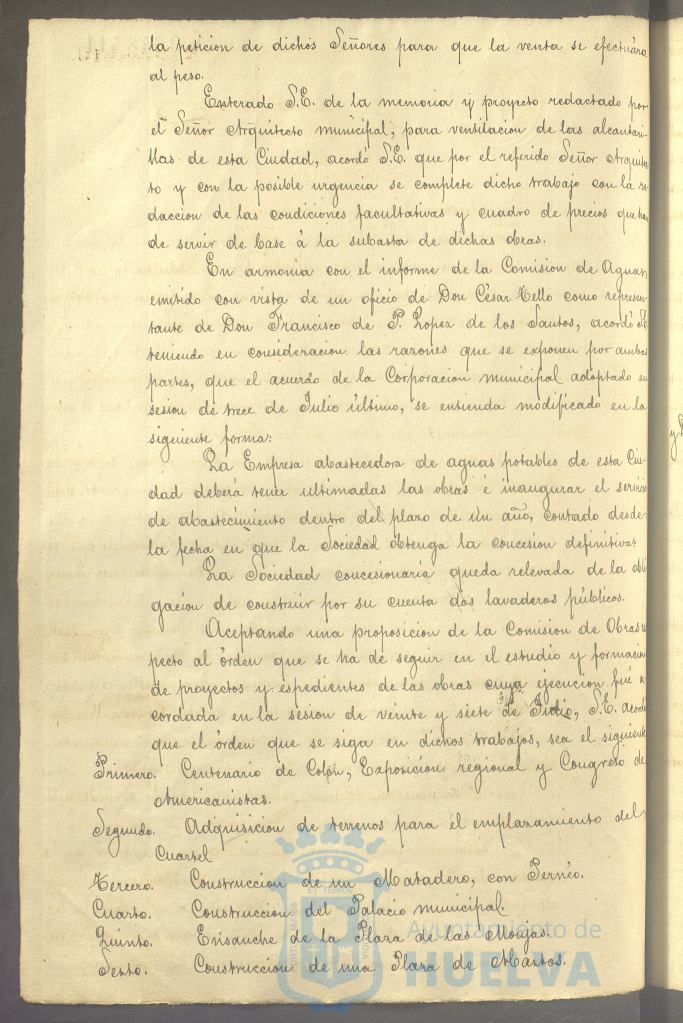 la peticion de dichos Señores para que la venta se efectuára
al peso.
Enterado S.E. de la memoria y proyecto redactado por
el Señor Arquitecto municipal, para ventilacion de las alcantari-
llas de esta Ciudad, acordó S.E. que por el referido Señor Arquitec-
to y con la posible urgencia se complete dicho trabajo con la re-
daccion de las condiciones facultativas y cuadro de precios que han
de servir de base á la subasta de dichas obras.
En armonía con el informe de la Comision de Aguas,
emitido con vista de un oficio de Don César Tello como represen-
tante de Don Francisco de P. Lopez de los Santos, acordó S.E.
teniendo en consideracion las razones que se exponen por ambas
partes, que el acuerdo de la Corporacion municipal adoptado en
sesion de trece de Julio último, se entienda modificado en la
siguiente forma:
La Empresa abastecedora de aguas potables de esta Ciu-
dad deberá tener ultimadas las obras é inaugurar el servicio
de abastecimiento dentro del plazo de un año, contado desde
la fecha en que la Sociedad obtenga la concesion definitiva.
La Sociedad concesionaria queda relevada de la obli-
gacion de construir por su cuenta dos lavaderos públicos.
Aceptando una proposicion de la Comision de Obras res-
pecto al órden que se ha de seguir en el estudio y formacion
de proyectos y espedientes de las obras cuya ejecucion fué a-
cordada en la sesion de veinte y siete de Julio, S.E. acordó
que el órden que se siga en dichos trabajos, sea el siguiente
Primero. Centenario de Colon, Exposicion regional y Congreso de
Americanistas.
Segundo. Adquisicion de terrenos para el emplazamiento del
Cuartel
Tercero. Construccion de un Matadero, con Pernéo.
Cuarto. Construccion del Palacio municipal.
Quinto. Ensanche de la Plaza de las Monjas.
Sexto. Construccion de una Plaza de Abastos.
Ayuntamiento de
HUELVA